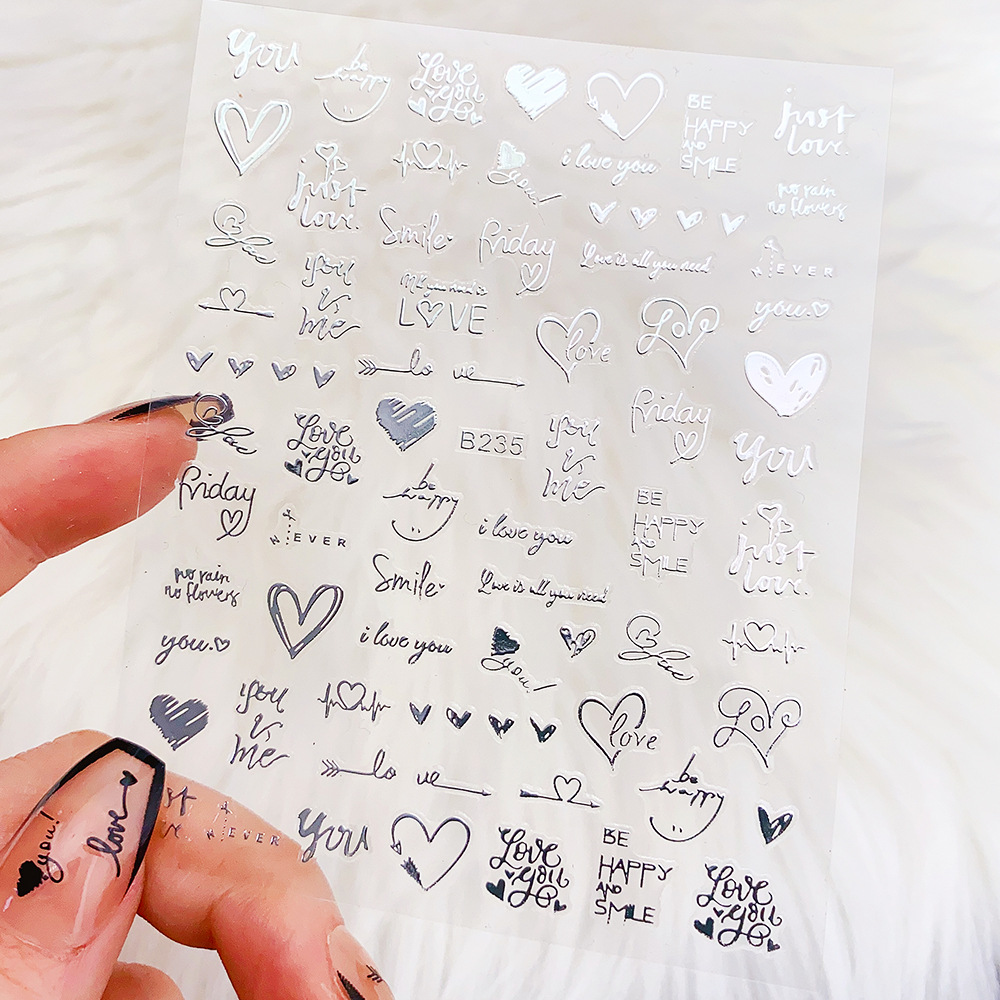 you
be
happy
Love
you
BE
HAPPY
AND
SMILE
just
love.
i love you
you!
no rain
no flowers
just
love.
Smile
friday
Love is all you need
EVER
you
&
me
LOVE
you.
love
Lov
lo ve
friday
you
&
me
you
Love
you
B235
friday
be
happy
i love you
BE
HAPPY
AND
SMILE
just
love.
N EVER
no rain
no flowers
Smile
Love is all you need
you.
i love you
you!
you
&
me
love
Lov
lo ve
be
happy
N EVER
you
Love
you
BE
HAPPY
AND
SMILE
Love
you
you!
love